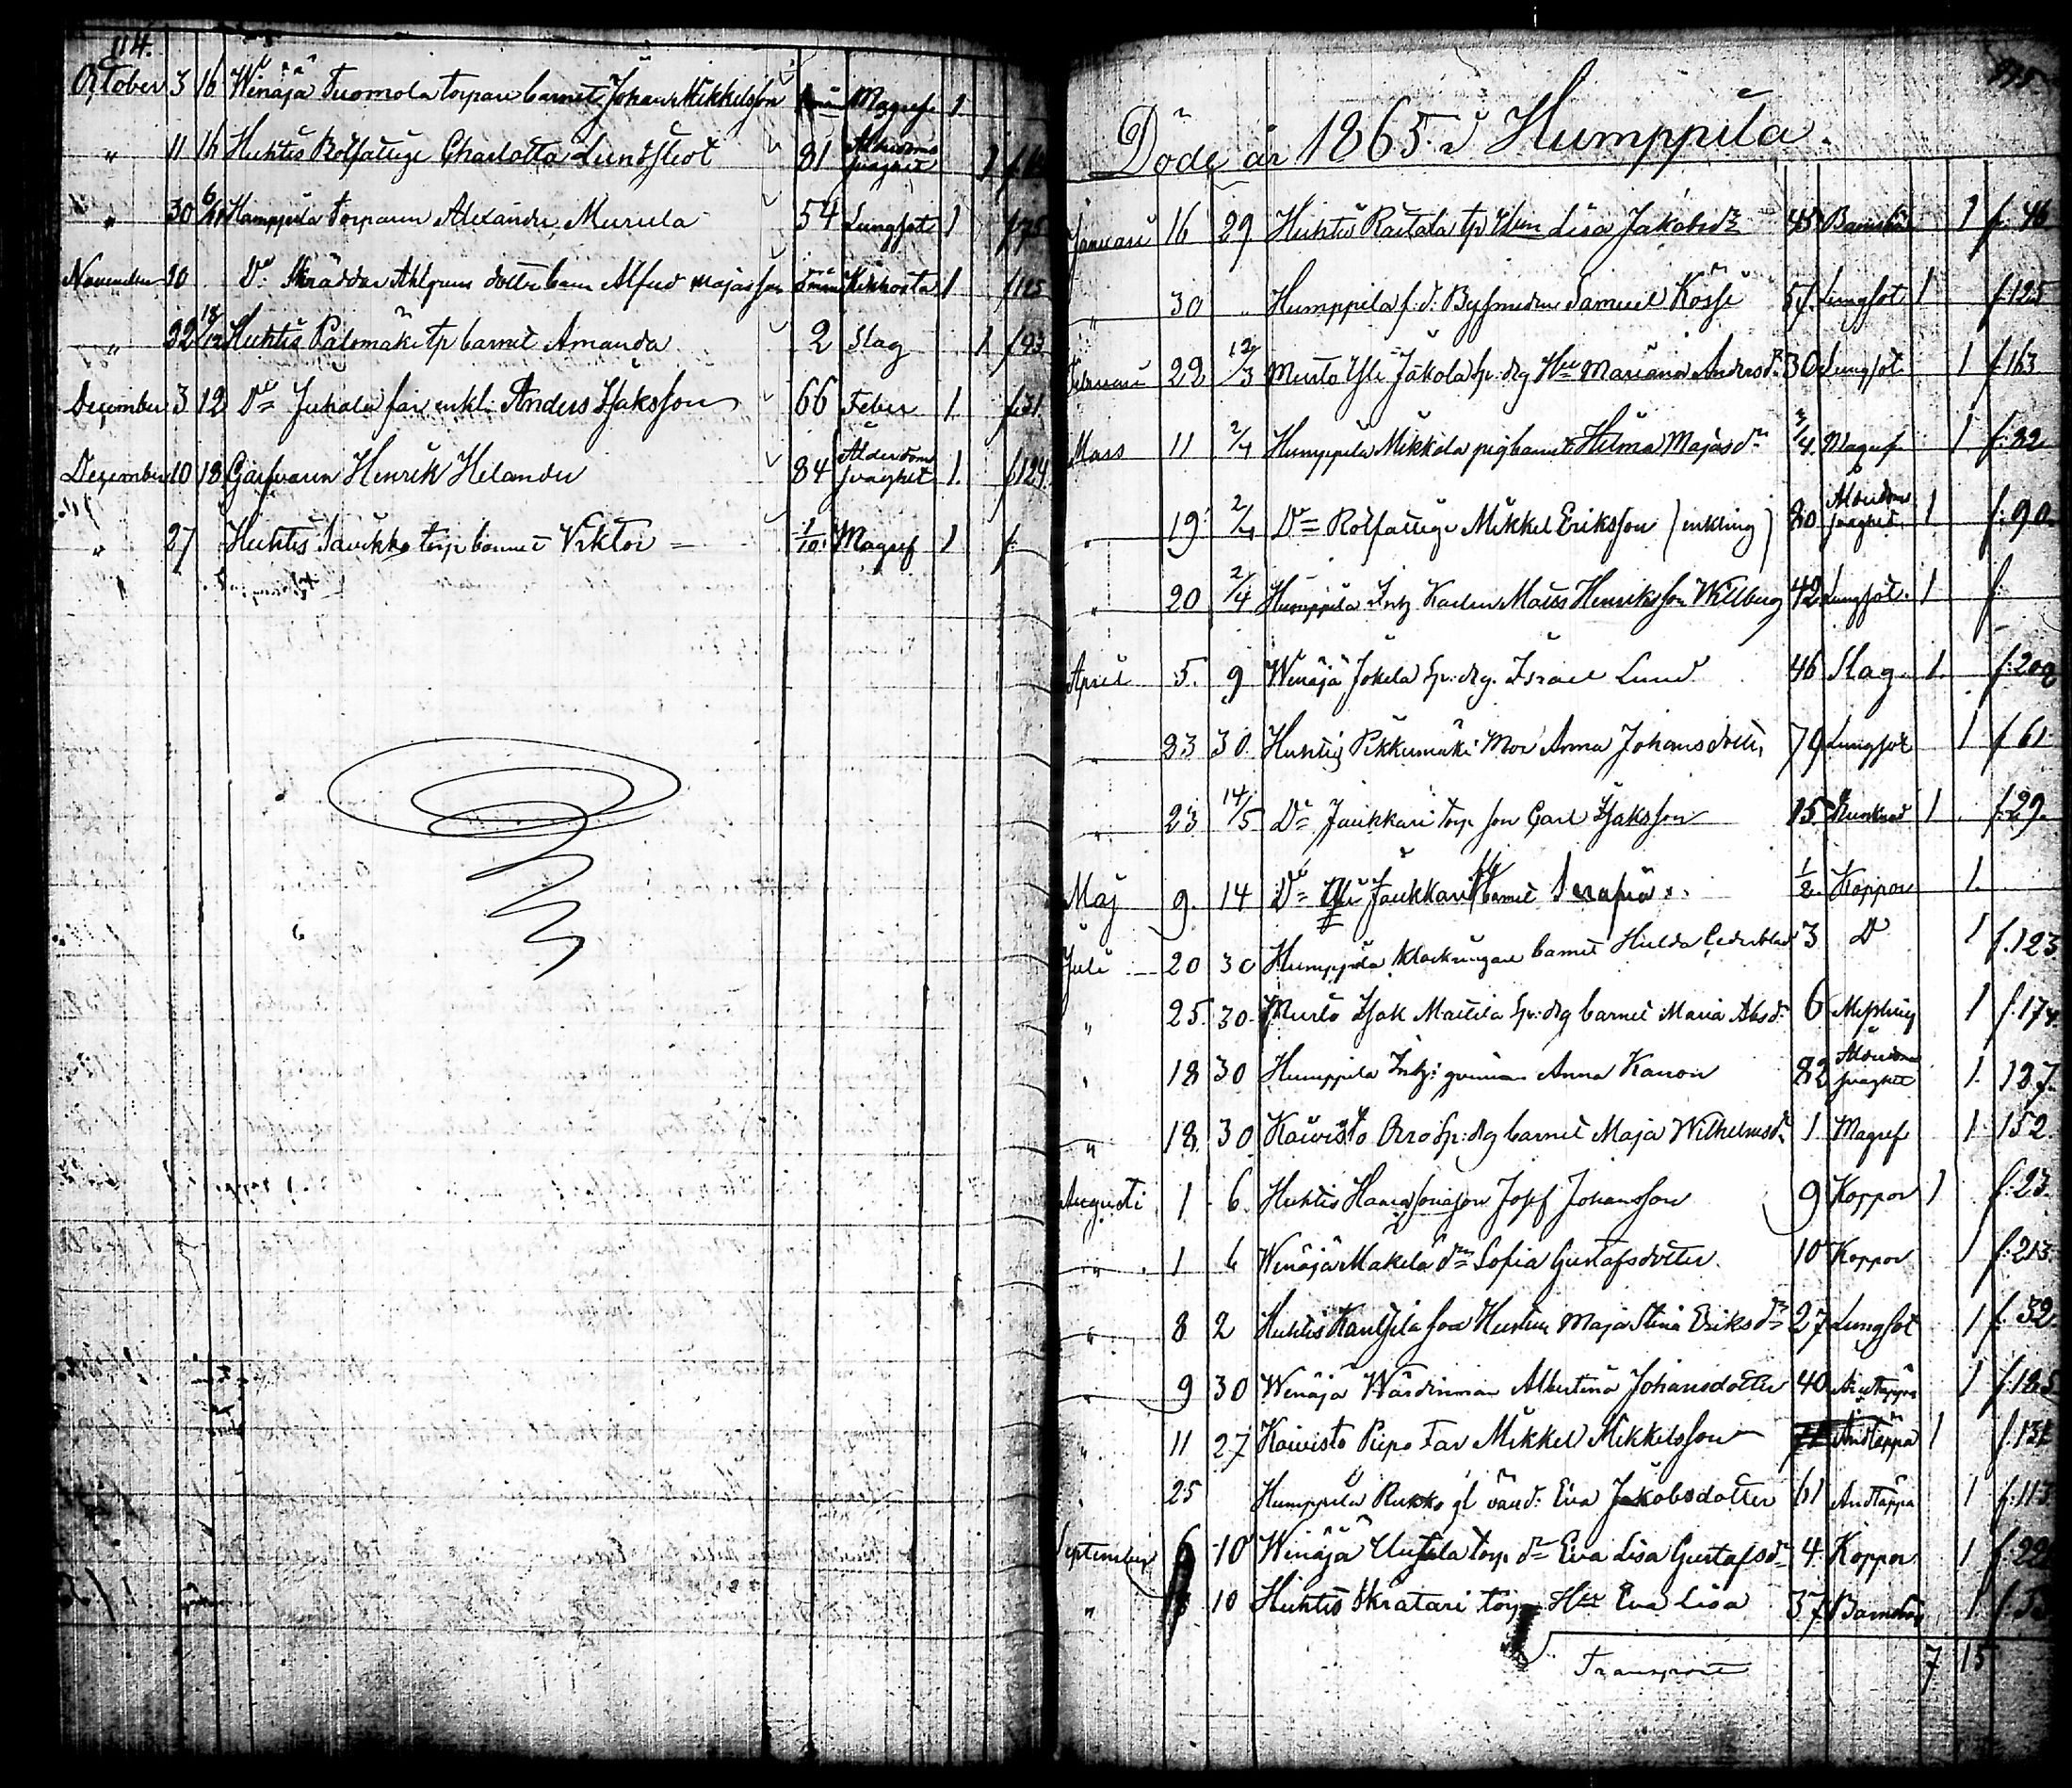 114.
October 3 16 Winäjä Tuomola torpare barnet Johan Mikkelsson Magref 1
" 11 16 Huhtis Rotfattige Charlotta Lundstedt 81 Ålderdoms svaghet 1
" 30 6/11 Humppila Torparen Alexander Murula 54 Lungsot 1 f 75
November 10 Do Skräddar Ahlgrens dotter barn Alfred Majasson Kikhosta 1 f 125
" 22 18/12 Huhtis Palomäki tp barnet Amanda 2 Slag 1 f 93
December 3 12 Do Juhala far enkl. Anders Isaksson 66 Feber 1 f 31
December 10 18 Garfvaren Henrik Helander 84 Ålderdoms svaghet 1. f 124
" 27 Huhtis torp barnet Viktor 1/10 Magref 1 f
115.
Döde år 1865 i Humppila.
Januari 16 29 Huhtis Raitala tp Lisa Jakobsdr 45 1 f. 46
" 30 " Humppila f.d. Bysmeden Samuel 57. Lungsot 1 f. 125
Februari 22 12/3 Murto Yli Jakola Sp. drg Hu Mariana Andersdr 30 Lungsot 1 f. 163
Mars 11 2/4 Humppila Mikkola pigbarnet Hilma Majasdr 3/4 Magref 1 f. 82
" 19 2/4 Do Rotfattige Mikkel Eriksson (enkling) 80 Ålderdoms svaghet 1 f. 90.
" 20 2/4 Humppila Inh Karlen Matts Henriksson Willberg 42 Lungsot. 1 f.
April 5. 9 Winäjä Jokela Sp. drg. Israel Lund 46 Slag 1. f. 202
" 23 30. Huhtis Pikkumäki Mor Anna Johansdotter 79 Lungsot 1 f 61
" 23 14/5 Do Jaukkari torp son Carl Isaksson 15 1 f. 29.
Maj 9. 14 Do Yli Jaukkari barnet Serafia 1/2 Koppor 1.
Juli 20 30 Humppila Klockringare barnet Hulda Cederblad 3 Do 1 f. 123
" 25. 30. Murto Isak Mattila Sp. drg barnet Maria Absdr 6 Messling 1 f. 174
" 18 30 Humppila Inh: qvinnan Anna Kanon 82 Ålderdoms svaghet 1. 137.
" 18. 30 Koivisto Orro Sp. drg barnet Maja Wilhelmsdr 1 Magref 1 152.
Augusti 1 6. Huhtis son Josef Johansson 9 Koppor 1 f. 23.
" 1 6 Winäjä Mäkelä dr Sofia Gustafsdotter. 10 Koppor 1 f. 213.
" 8 2 Huhtis Maja Stina Eriksdr 27 Lungsot 1 f. 32
" 9 30 Winäjä Wärdinnan Albertina Johansdotter 40 Andtäppa 1 f. 185
" 11 27 Koivisto Piepo Far Mikkel Mikkelsson Andtäppa 1 f. 131
25 Humppila Rukko gl värd: Eva Jakobsdotter 61 Andtäppa 1 f. 113
September 6 10 Winäjä Uutela torp dr Eva Lisa Gustafsdr 4. Koppor 1 f. 22
" 10 Huhtis Skratari torp Hu Eva Lisa 37 1.
Transport 7 15